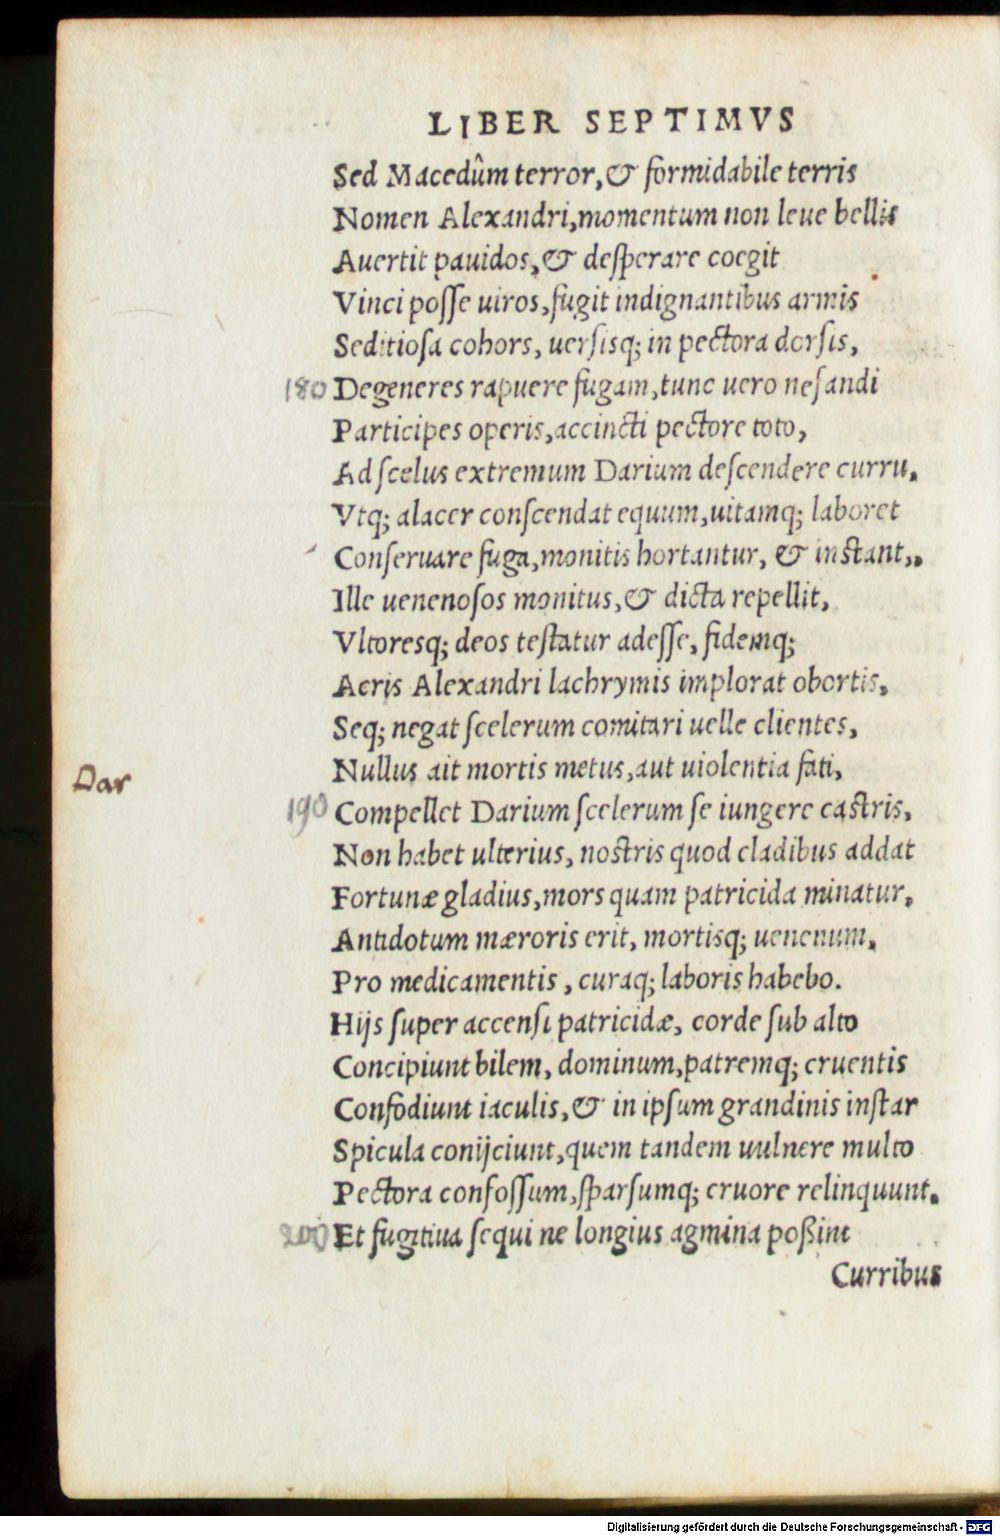 LIBER SEPTIMVS
Sed Macedûm terror, & formidabile terris
Nomen Alexandri, momentum non leue bellis
Auertit pauidos, & desperare coegit
Vinci posse uiros, fugit indignantibus armis
Seditiosa cohors, uersisq; in pectora dorsis,
180 Degeneres rapuere fugam, tunc uero nefandi
Participes operis, accincti pectore toto,
Ad scelus extremum Darium descendere curru.
Vtq; alacer conscendat equum, uitamq; laboret
Conseruare fuga, monitis hortantur, & instant,.
Ille uenenosos monitus, & dicta repellit,
Vltoresq; deos testatur adesse, fidemq;
Acris Alexandri lachrymis implorat obortis,
Seq; negat scelerum comitari uelle clientes,
Dar Nullus ait mortis metus, aut uiolentia fati,
190 Compellet Darium scelerum se iungere castris,
Non habet ulterius, nostris quod cladibus addat
Fortunæ gladius, mors quam patricida minatur,
Antidotum mæroris erit, mortisq; uenenum,
Pro medicamentis, curaq; laboris habebo.
Hijs super accensi patricidæ, corde sub alto
Concipiunt bilem, dominum, patremq; cruentis
Confodiunt iaculis, & in ipsum grandinis instar
Spicula conijciunt, quem tandem uulnere multo
Pectora confossum, sparsumq; cruore relinquunt.
200 Et fugitiua sequi ne longius agmina poßint
Curribus
Digitalisierung gefördert durch die Deutsche Forschungsgemeinschaft - DFG